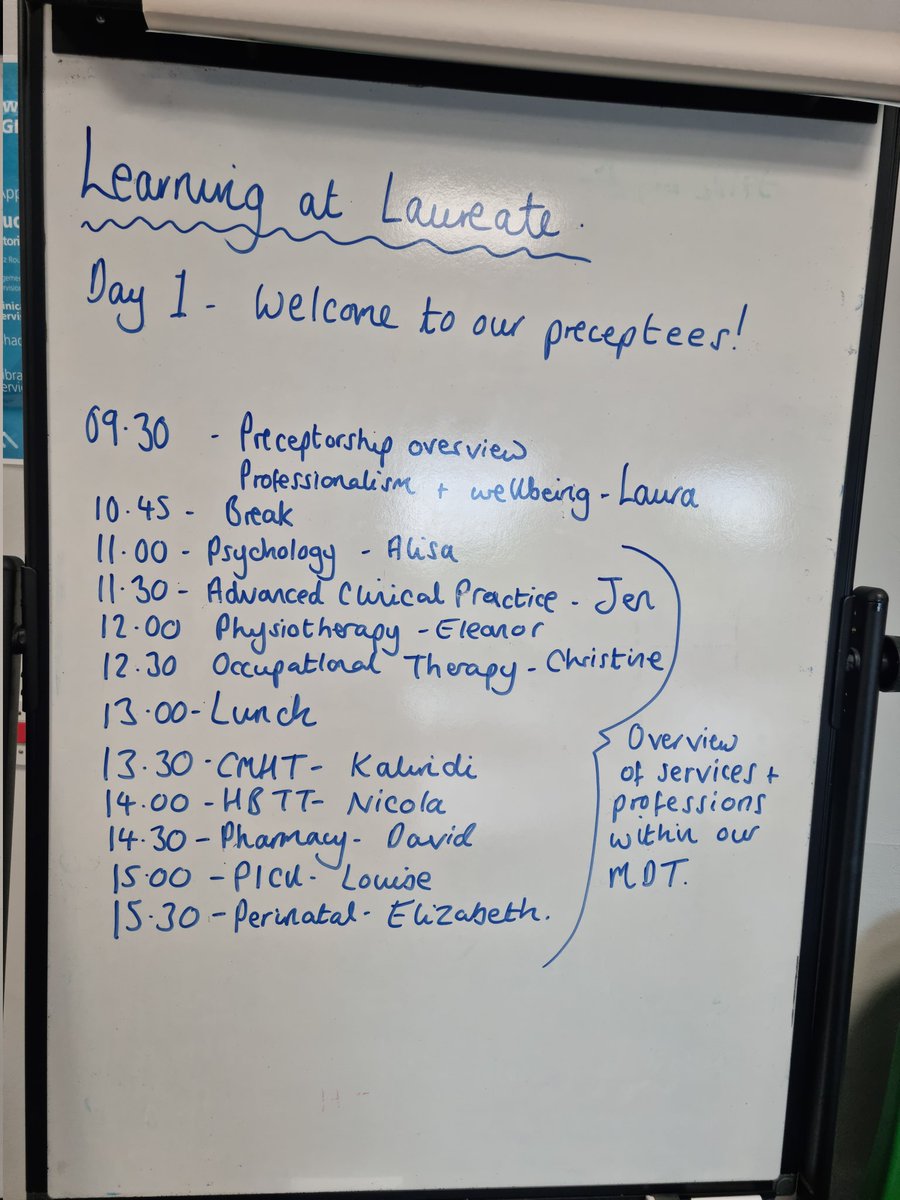 Learning at Laureate.
Day 1 - Welcome to our preceptees!
09.30 - Preceptorship overview
Professionalism + wellbeing - Laura
10.45 - Break
11.00 - Psychology - Alisa
11.30 - Advanced Clinical Practice - Jen
12.00 Physiotherapy - Eleanor
12.30 Occupational Therapy - Christine
13.00 - Lunch
13.30 - CMHT -
14.00 - HBTT - Nicola
14.30 - Pharmacy - David
15.00 - PICU - Louise
15.30 - Perinatal - Elizabeth.
Overview
of services +
professions
within our
MDT.